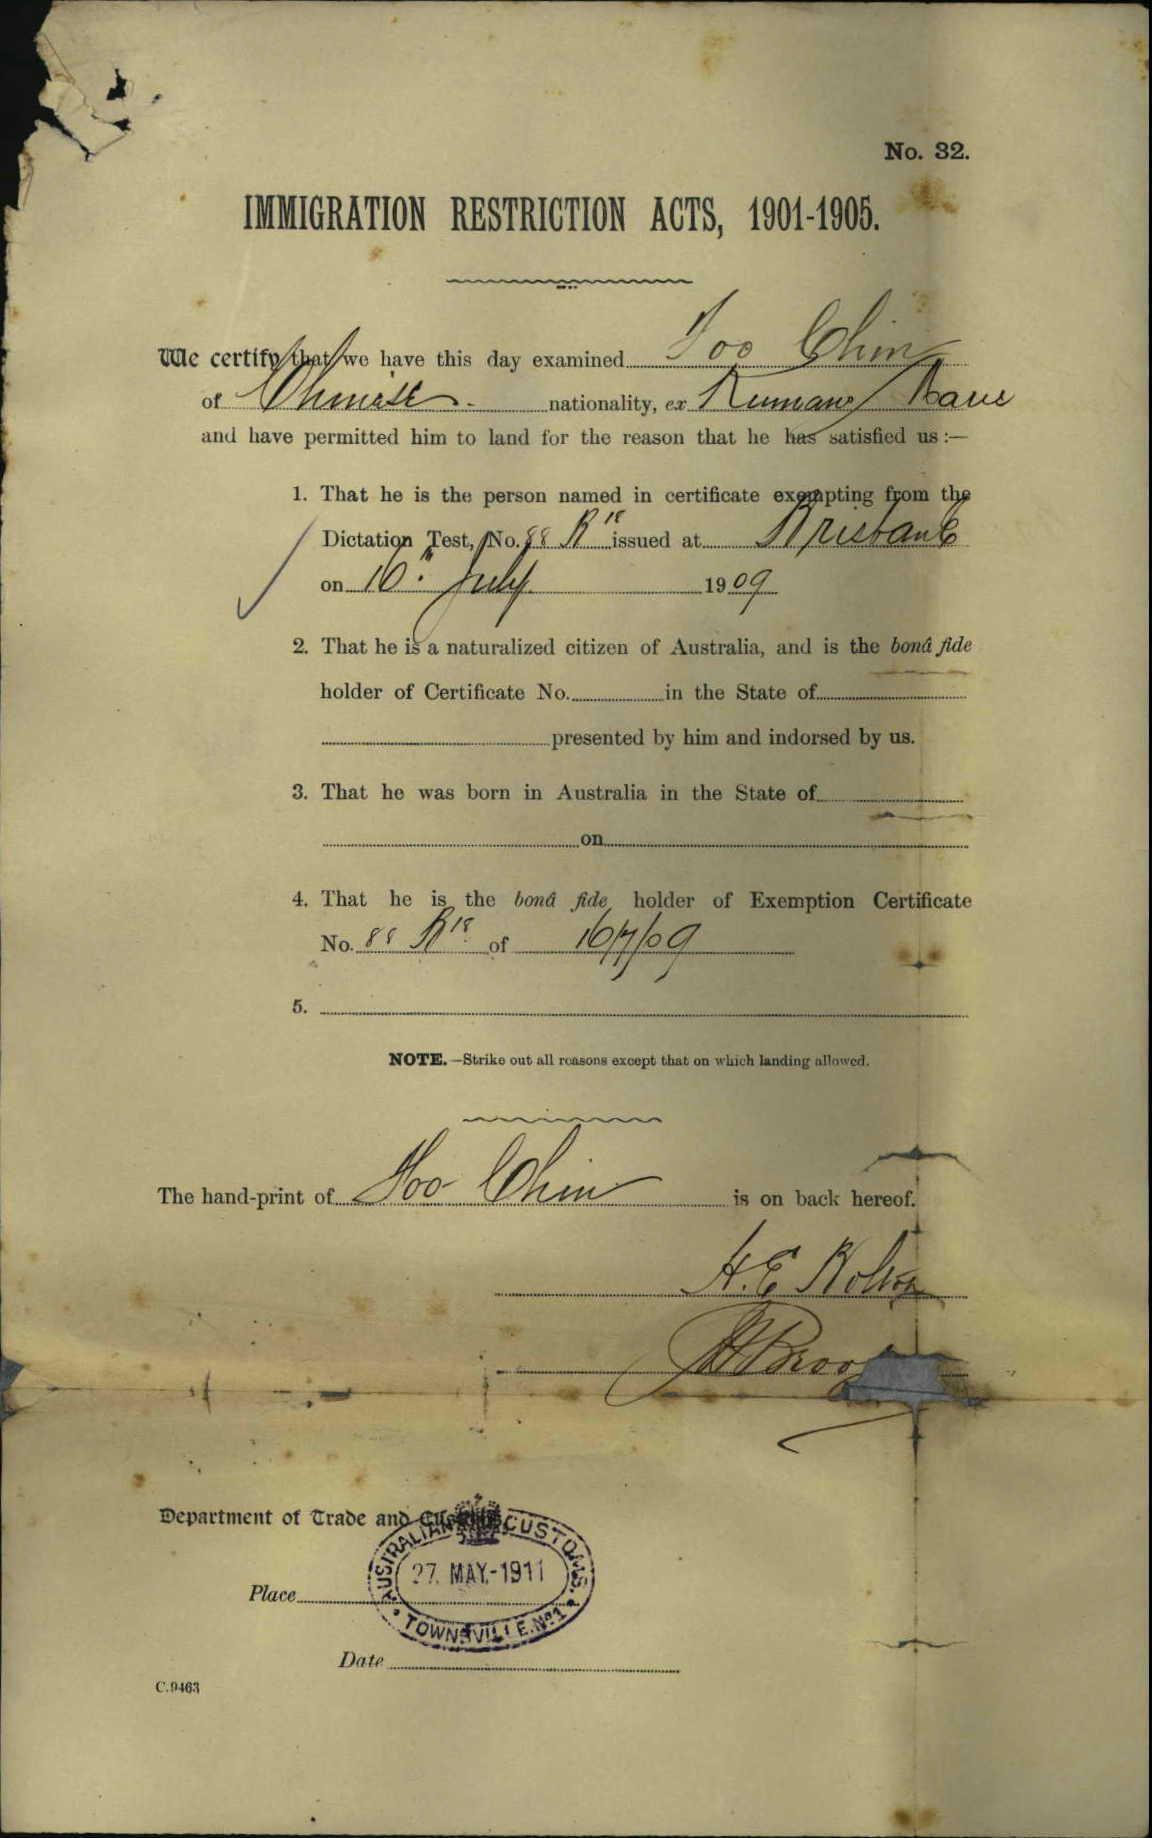 No. 32.
IMMIGRATION RESTRICTION ACTS, 1901-1905.
We certify that we have this day examined Foo Chin
of Chinese nationality, ex Kumano Maru
and have permitted him to land for the reason that he has satisfied us:—
1. That he is the person named in certificate exempting from the
Dictation Test, No. 88 issued at Brisbane
on 16th July 1909
2. That he is a naturalized citizen of Australia, and is the bonâ fide
holder of Certificate No. in the State of
presented by him and indorsed by us.
3. That he was born in Australia in the State of
on
4. That he is the bonâ fide holder of Exemption Certificate
No. 88 of 16/7/09
5.
NOTE.—Strike out all reasons except that on which landing allowed.
The hand-print of Foo Chin is on back hereof.
H. E.
Department of Trade and Customs
AUSTRALIAN CUSTOMS.
27. MAY. 1911
Place
TOWNSVILLE. No 1
Date
C.9463